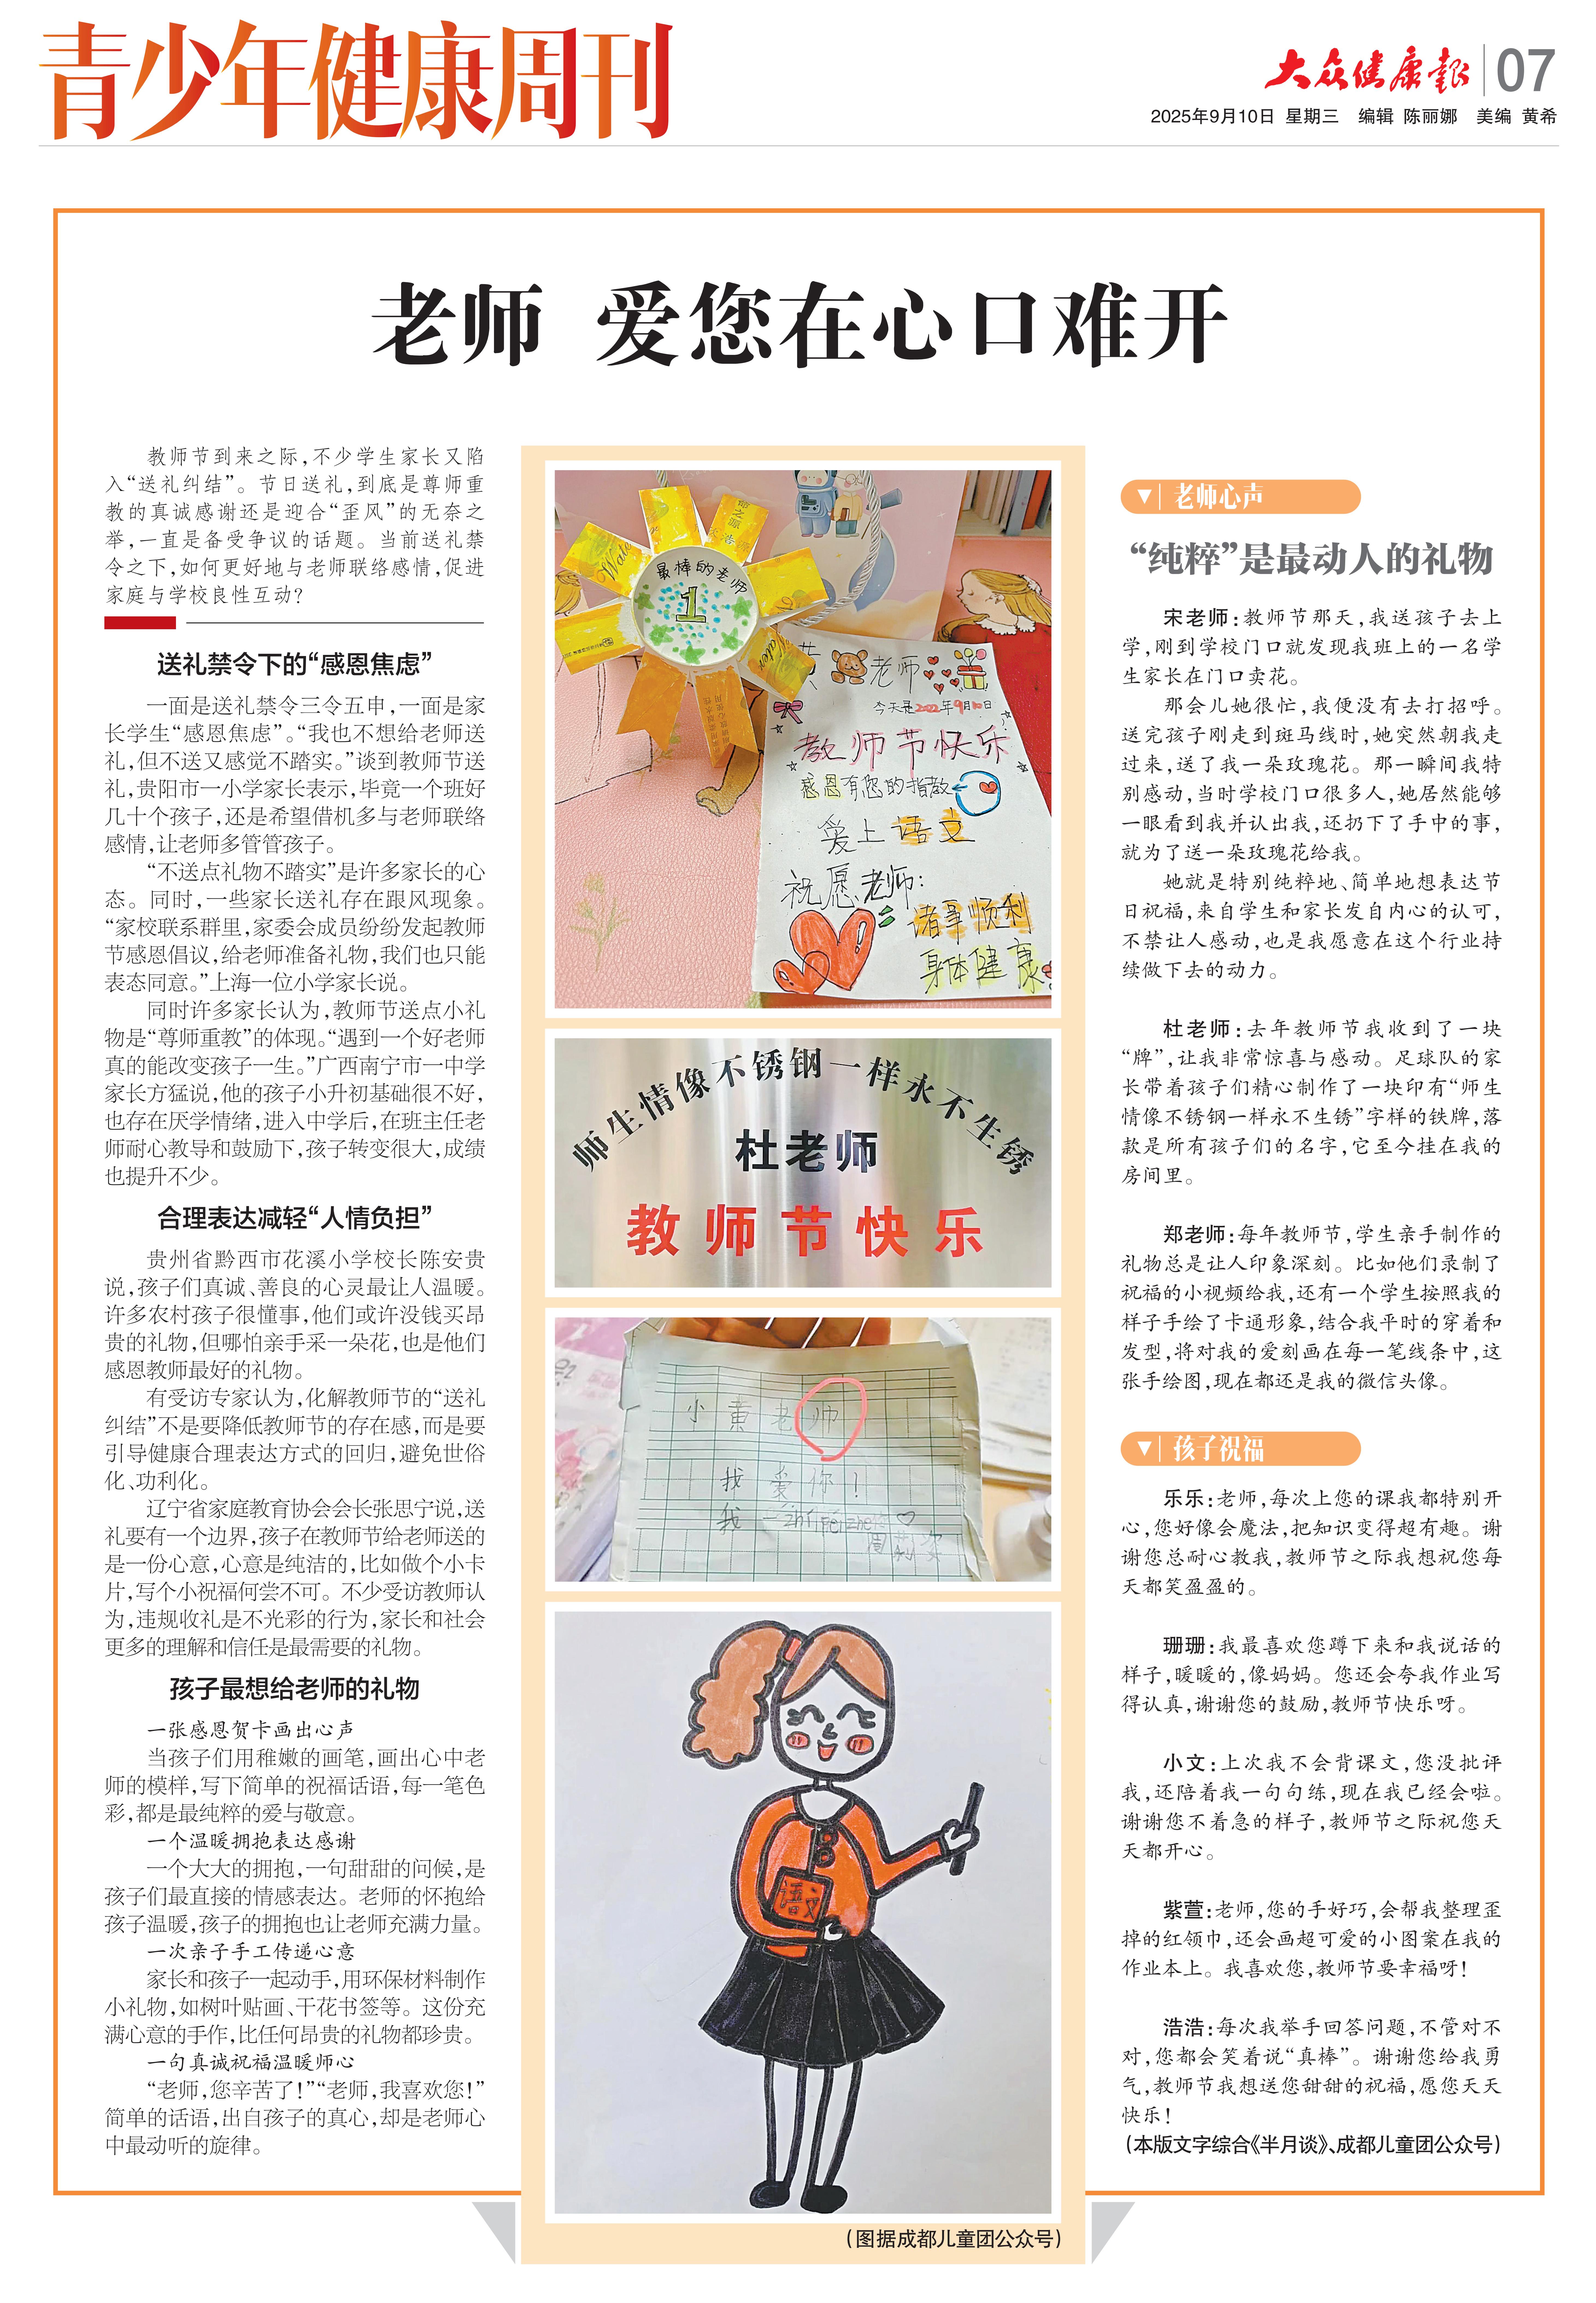 青少年健康周刊
大众健康报 07
2025年9月10日 星期三 编辑 陈丽娜 美编 黄希
老师 爱您在心口难开
教师节到来之际,不少学生家长又陷
入“送礼纠结”。节日送礼,到底是尊师重
教的真诚感谢还是迎合“歪风”的无奈之
举,一直是备受争议的话题。当前送礼禁
令之下,如何更好地与老师联络感情,促进
家庭与学校良性互动?
送礼禁令下的“感恩焦虑”
一面是送礼禁令三令五申,一面是家
长学生“感恩焦虑”。“我也不想给老师送
礼,但不送又感觉不踏实。”谈到教师节送
礼,贵阳市一小学家长表示,毕竟一个班好
几十个孩子,还是希望借机多与老师联络
感情,让老师多管管孩子。
“不送点礼物不踏实”是许多家长的心
态。同时,一些家长送礼存在跟风现象。
“家校联系群里,家委会成员纷纷发起教师
节感恩倡议,给老师准备礼物,我们也只能
表态同意。”上海一位小学家长说。
同时许多家长认为,教师节送点小礼
物是“尊师重教”的体现。“遇到一个好老师
真的能改变孩子一生。”广西南宁市一中学
家长方猛说,他的孩子小升初基础很不好,
也存在厌学情绪,进入中学后,在班主任老
师耐心教导和鼓励下,孩子转变很大,成绩
也提升不少。
合理表达减轻“人情负担”
贵州省黔西市花溪小学校长陈安贵
说,孩子们真诚、善良的心灵最让人温暖。
许多农村孩子很懂事,他们或许没钱买昂
贵的礼物,但哪怕亲手采一朵花,也是他们
感恩教师最好的礼物。
有受访专家认为,化解教师节的“送礼
纠结”不是要降低教师节的存在感,而是要
引导健康合理表达方式的回归,避免世俗
化、功利化。
辽宁省家庭教育协会会长张思宁说,送
礼要有一个边界,孩子在教师节给老师送的
是一份心意,心意是纯洁的,比如做个小卡
片,写个小祝福何尝不可。不少受访教师认
为,违规收礼是不光彩的行为,家长和社会
更多的理解和信任是最需要的礼物。
孩子最想给老师的礼物
一张感恩贺卡画出心声
当孩子们用稚嫩的画笔,画出心中老
师的模样,写下简单的祝福话语,每一笔色
彩,都是最纯粹的爱与敬意。
一个温暖拥抱表达感谢
一个大大的拥抱,一句甜甜的问候,是
孩子们最直接的情感表达。老师的怀抱给
孩子温暖,孩子的拥抱也让老师充满力量。
一次亲子手工传递心意
家长和孩子一起动手,用环保材料制作
小礼物,如树叶贴画、干花书签等。这份充
满心意的手作,比任何昂贵的礼物都珍贵。
一句真诚祝福温暖师心
“老师,您辛苦了!”“老师,我喜欢您!”
简单的话语,出自孩子的真心,却是老师心
中最动听的旋律。
最棒的老师
1
Water
Water
老师
今天是2022年9月10日
教师节快乐
感恩有您的指教
爱上语文
祝愿老师:
诸事顺利
身体健康
师生情像不锈钢一样永不生锈
杜老师
教师节快乐
小黄老师
我爱你!
我
语文
(图据成都儿童团公众号)
老师心声
“纯粹”是最动人的礼物
宋老师:教师节那天,我送孩子去上
学,刚到学校门口就发现我班上的一名学
生家长在门口卖花。
那会儿她很忙,我便没有去打招呼。
送完孩子刚走到斑马线时,她突然朝我走
过来,送了我一朵玫瑰花。那一瞬间我特
别感动,当时学校门口很多人,她居然能够
一眼看到我并认出我,还扔下了手中的事,
就为了送一朵玫瑰花给我。
她就是特别纯粹地、简单地想表达节
日祝福,来自学生和家长发自内心的认可,
不禁让人感动,也是我愿意在这个行业持
续做下去的动力。
杜老师:去年教师节我收到了一块
“牌”,让我非常惊喜与感动。足球队的家
长带着孩子们精心制作了一块印有“师生
情像不锈钢一样永不生锈”字样的铁牌,落
款是所有孩子们的名字,它至今挂在我的
房间里。
郑老师:每年教师节,学生亲手制作的
礼物总是让人印象深刻。比如他们录制了
祝福的小视频给我,还有一个学生按照我的
样子手绘了卡通形象,结合我平时的穿着和
发型,将对我的爱刻画在每一笔线条中,这
张手绘图,现在都还是我的微信头像。
孩子祝福
乐乐:老师,每次上您的课我都特别开
心,您好像会魔法,把知识变得超有趣。谢
谢您总耐心教我,教师节之际我想祝您每
天都笑盈盈的。
珊珊:我最喜欢您蹲下来和我说话的
样子,暖暖的,像妈妈。您还会夸我作业写
得认真,谢谢您的鼓励,教师节快乐呀。
小文:上次我不会背课文,您没批评
我,还陪着我一句句练,现在我已经会啦。
谢谢您不着急的样子,教师节之际祝您天
天都开心。
紫萱:老师,您的手好巧,会帮我整理歪
掉的红领巾,还会画超可爱的小图案在我的
作业本上。我喜欢您,教师节要幸福呀!
浩浩:每次我举手回答问题,不管对不
对,您都会笑着说“真棒”。谢谢您给我勇
气,教师节我想送您甜甜的祝福,愿您天天
快乐!
(本版文字综合《半月谈》、成都儿童团公众号)